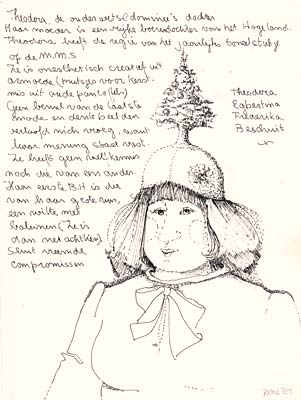 Theodora, de ouderwetse dominee's dochter
Haar moeder is een rijke boerendochter van het Hogeland.
Theodora heeft de regie van het jaarlijks toneelstukje
of de M.M.S
Ze is onesthetisch creatief uit
armoede (mutsjes voor kerst-
mis uit oude panty('s)
Geen benul van de laatste
mode en denkbeelden
verloofd mich vroeg, want
haar mening staat vast.
Ze heeft geen zelfkennis
noch die van een ander.
Haar eerste B.H is die
van haar grote zus,
een witte met
baleinen (ze is
dan net achttien)
Sluit vreemde
compromissen
Theodora
Egbertina
Frederika
Beschuit